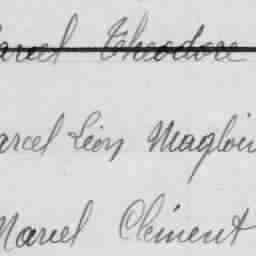 arcel Théodore
arcel Léon Magloir
Marcel Clément